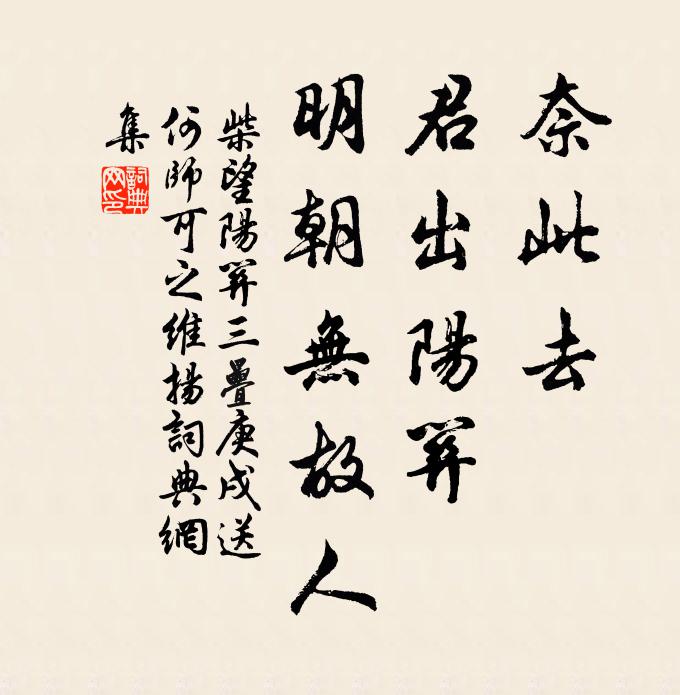 奈此去
君出陽關
明朝無故人
柴望陽關三疊庚戌送
何師可之維揚詞典網
集
詞典網印